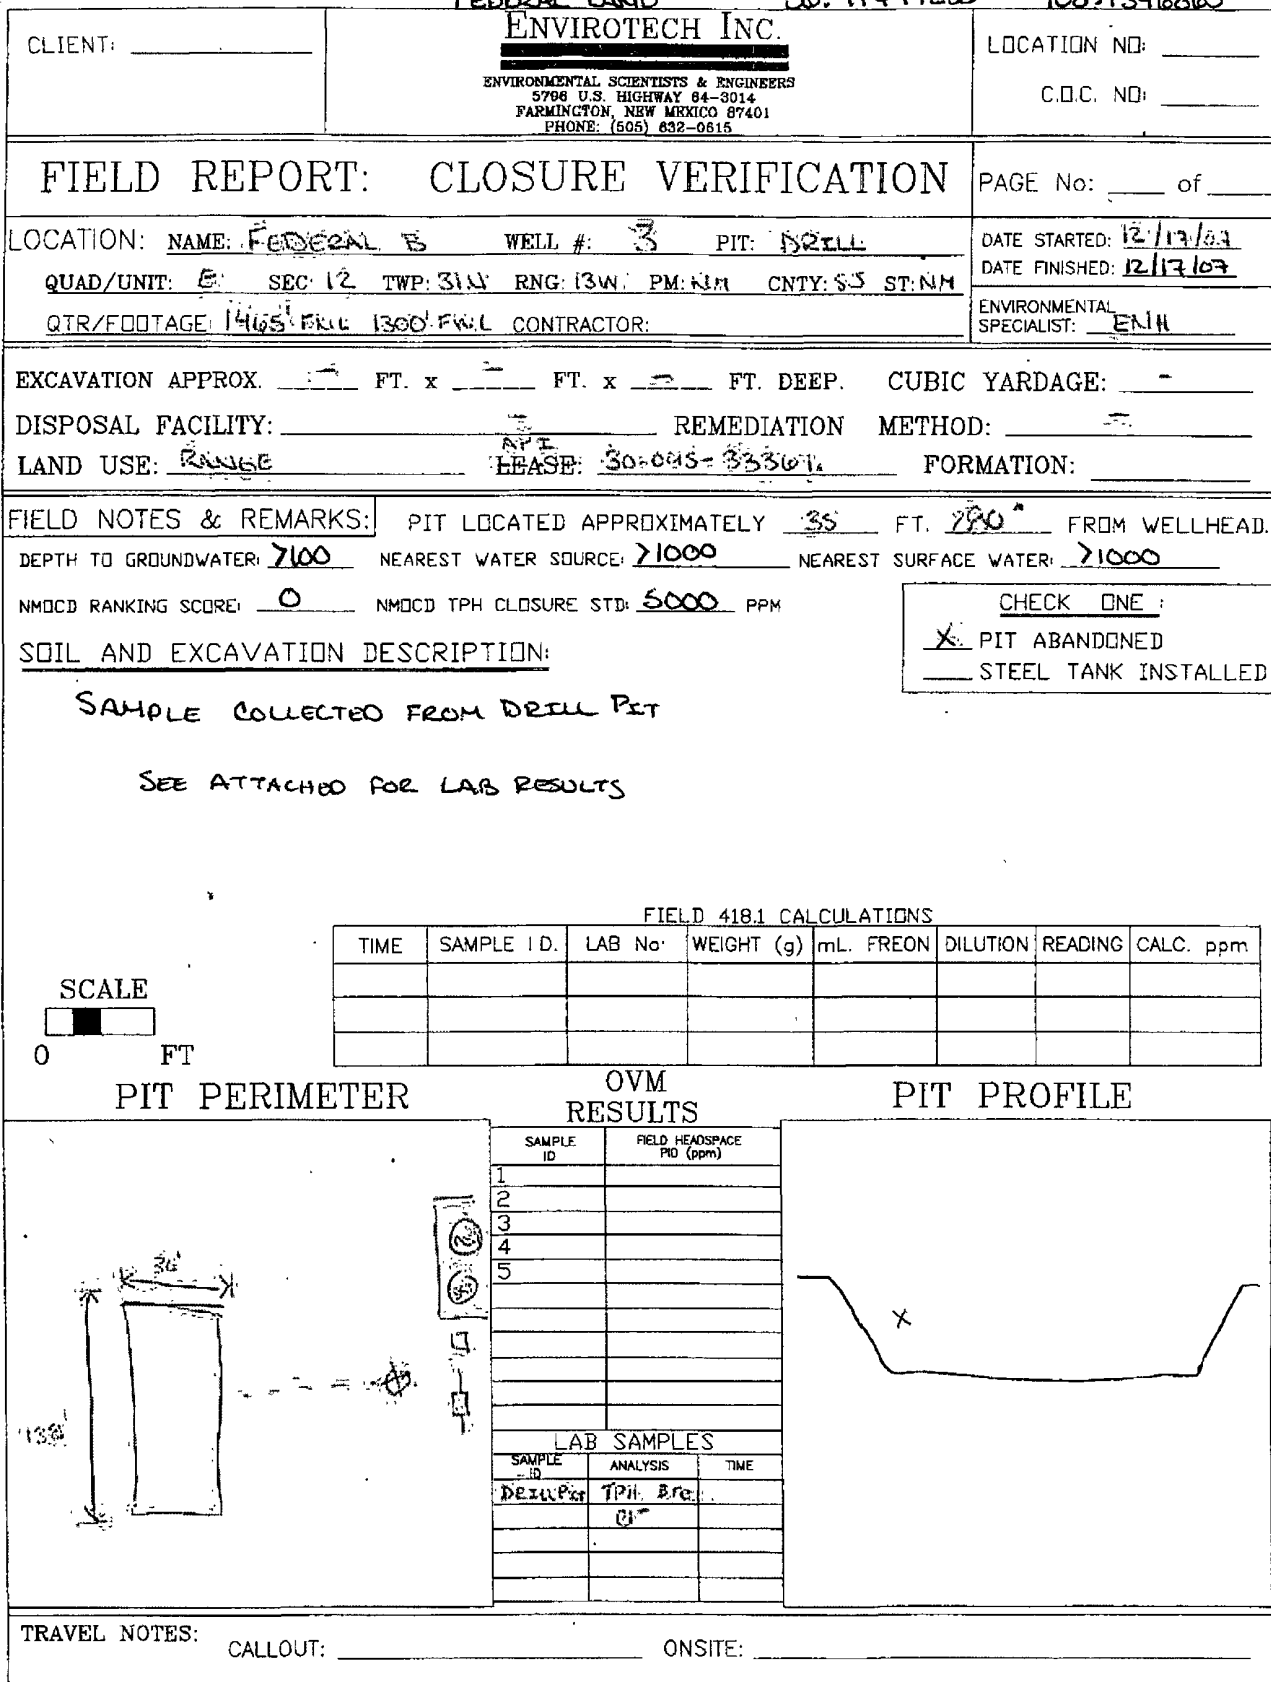 FEDERAL LAND
CLIENT:
ENVIROTECH INC.
ENVIRONMENTAL SCIENTISTS & ENGINEERS
5796 U.S. HIGHWAY 64-3014
FARMINGTON, NEW MEXICO 87401
PHONE: (505) 632-0615
LOCATION NO:
C.O.C. NO:
FIELD REPORT: CLOSURE VERIFICATION
PAGE No: of
LOCATION: NAME: FEDERAL B WELL #: 3 PIT: DRILL
DATE STARTED: 12/17/07
DATE FINISHED: 12/17/07
QUAD/UNIT: E SEC: 12 TWP: 31N RNG: 13W PM: NM CNTY: SJ ST: NM
QTR/FOOTAGE: 1465' FNL 1300' FWL CONTRACTOR:
ENVIRONMENTAL
SPECIALIST:
EXCAVATION APPROX. - FT. x - FT. x - FT. DEEP. CUBIC YARDAGE: -
DISPOSAL FACILITY: - REMEDIATION METHOD: -
API
LAND USE: RANGE LEASE: FORMATION:
FIELD NOTES & REMARKS: PIT LOCATED APPROXIMATELY 35 FT. FROM WELLHEAD.
DEPTH TO GROUNDWATER: >100 NEAREST WATER SOURCE: >1000 NEAREST SURFACE WATER: >1000
NMOCD RANKING SCORE: 0 NMOCD TPH CLOSURE STD: 5000 PPM
CHECK ONE :
X PIT ABANDONED
STEEL TANK INSTALLED
SOIL AND EXCAVATION DESCRIPTION:
SAMPLE COLLECTED FROM DRILL PIT
SEE ATTACHED FOR LAB RESULTS
FIELD 418.1 CALCULATIONS
TIME SAMPLE I.D. LAB No: WEIGHT (g) mL. FREON DILUTION READING CALC. ppm
SCALE
0 FT
PIT PERIMETER
OVM
RESULTS
PIT PROFILE
SAMPLE
ID
FIELD HEADSPACE
PID (ppm)
1
2
3
4
5
X
LAB SAMPLES
SAMPLE
ID
ANALYSIS
TIME
DRILL PIT TPH
TRAVEL NOTES:
CALLOUT: ONSITE: